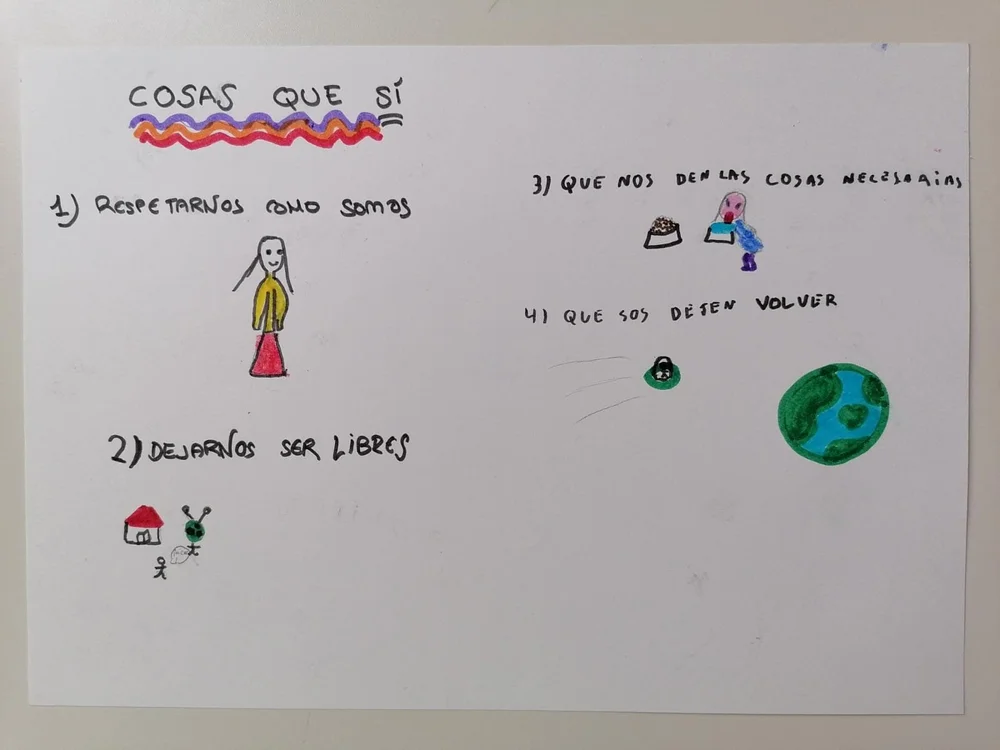 COSAS QUE SÍ
1) RESPETARNOS COMO SOMOS
2) DEJARNOS SER LIBRES
3) QUE NOS DEN LAS COSAS NECESARIAS
4) QUE SOS DEJEN VOLVER